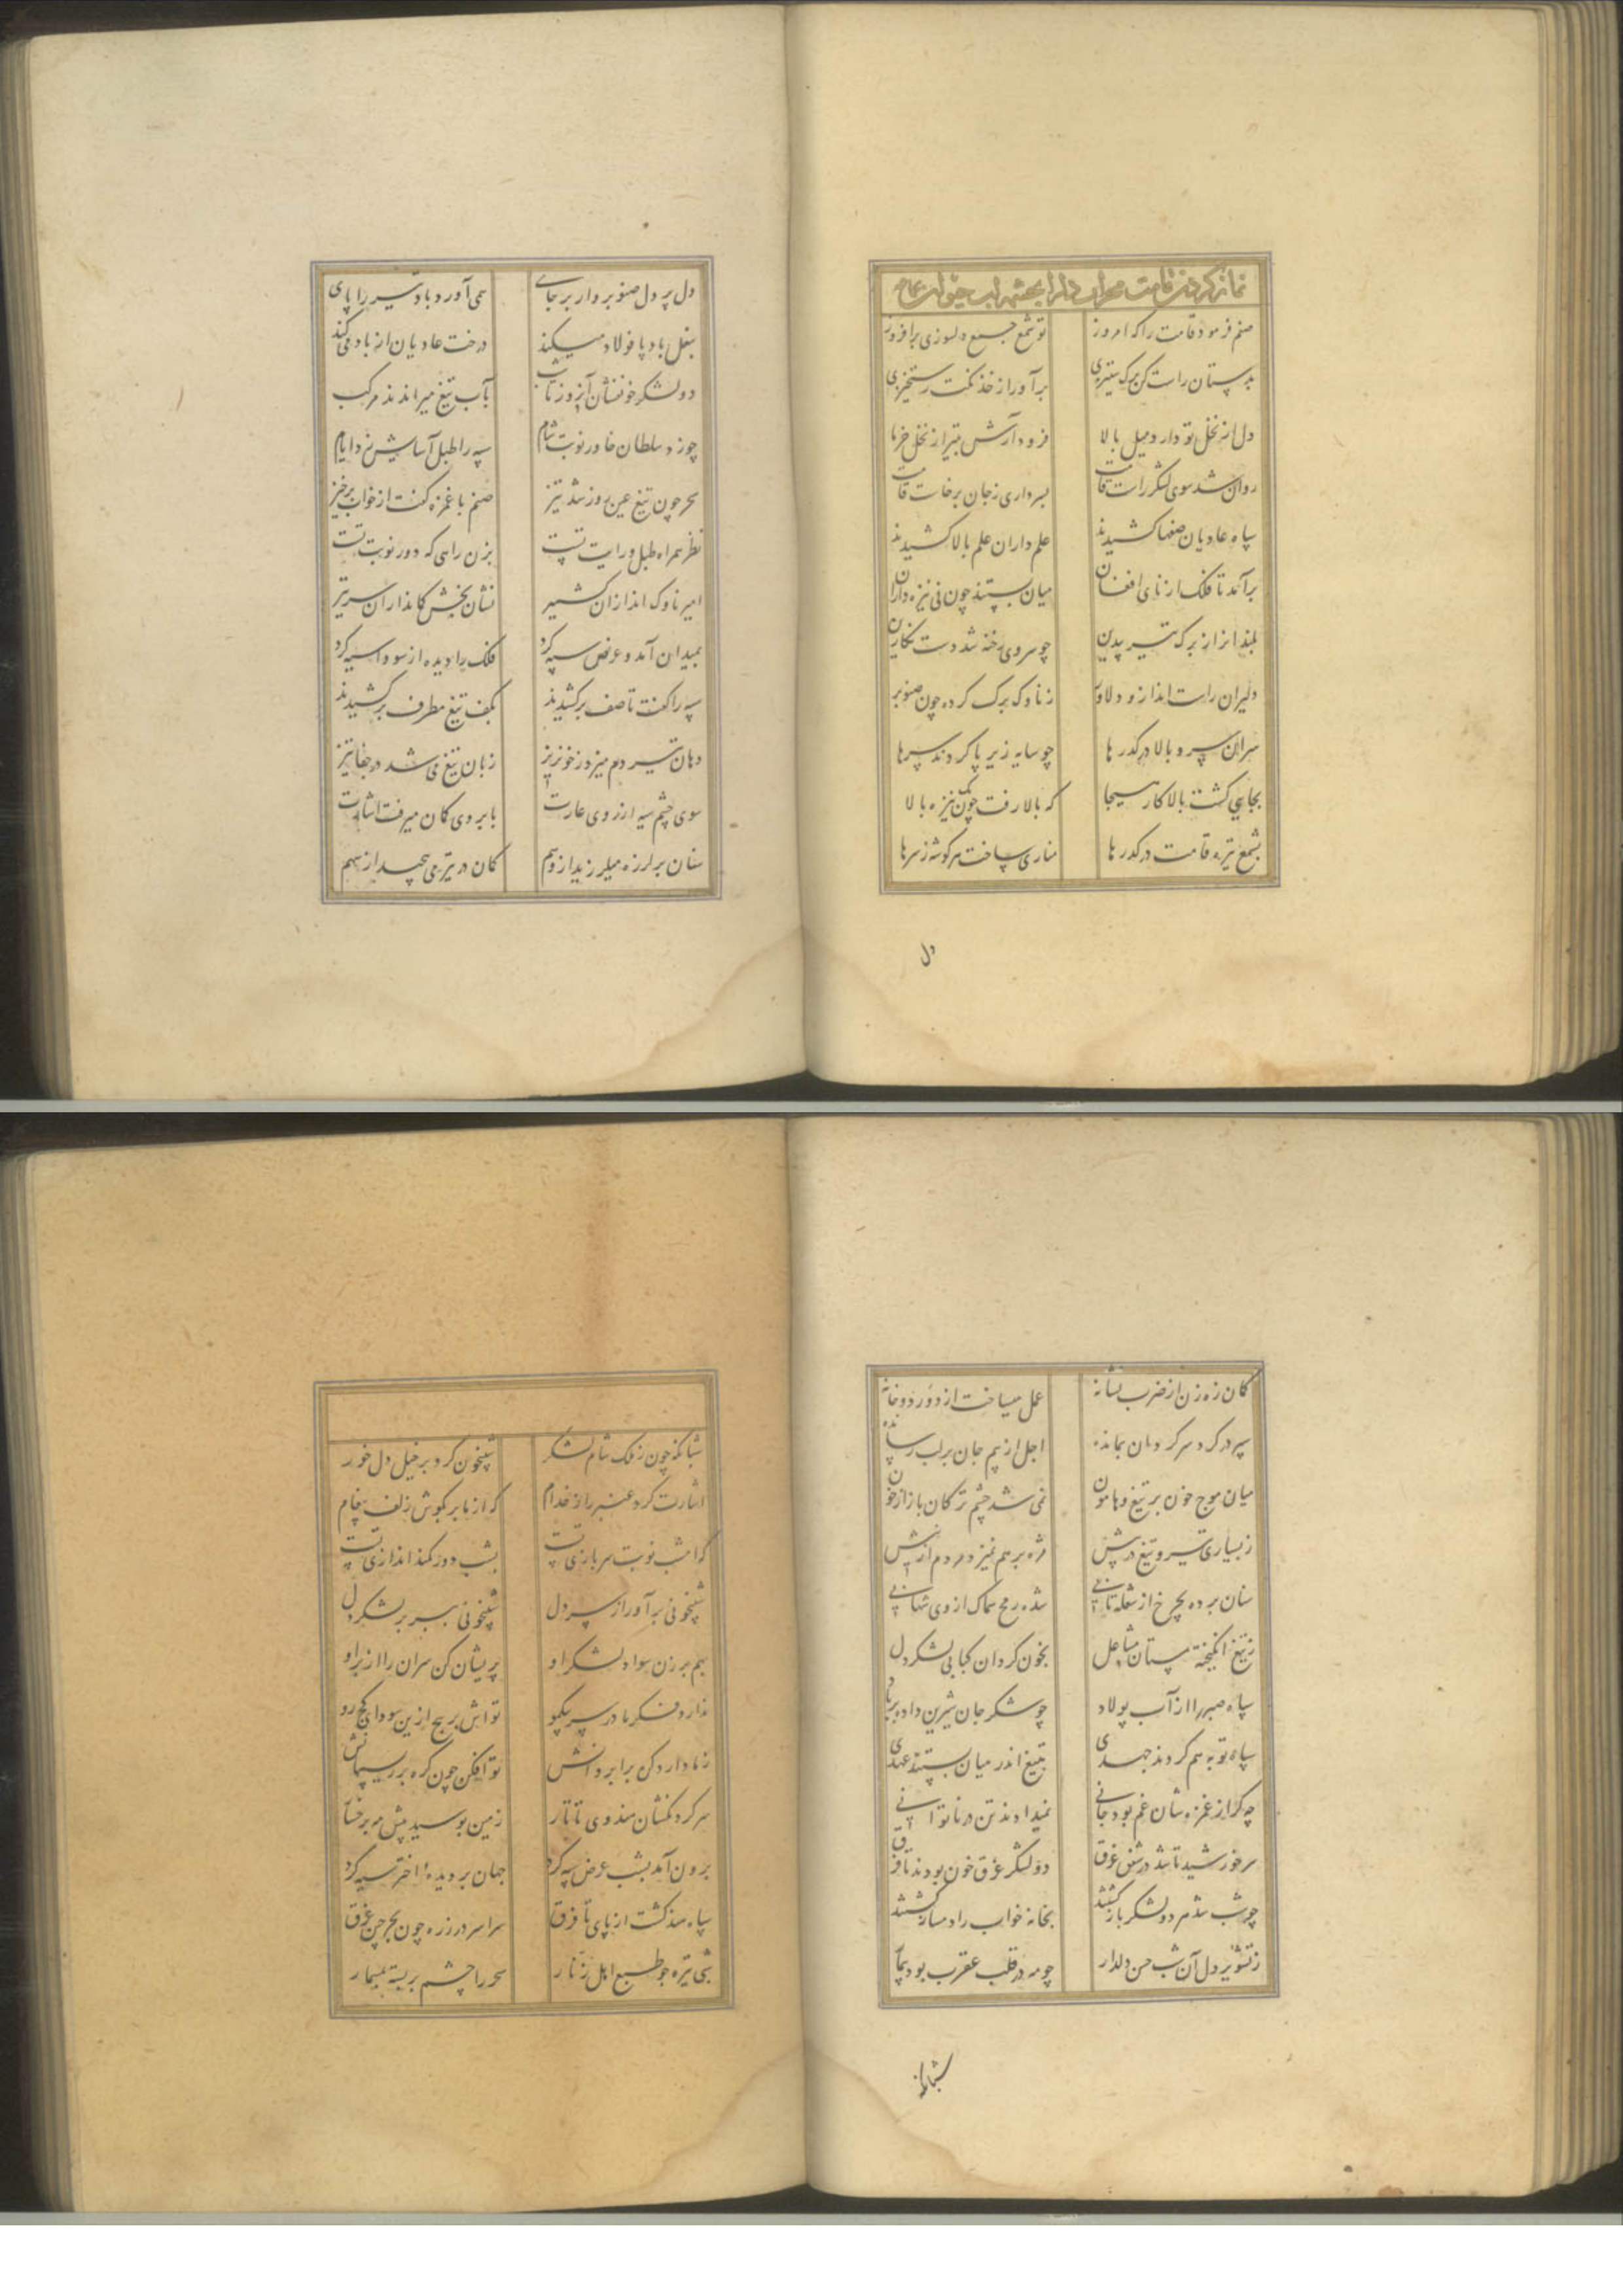 نماز کردن قامت
صنم فرمود قامت را که امروز تو شمع جمع دلسوزی برافروز
بدستان راست کن برک ستیزی برآور از خدنکت رستخیزی
دل از نخل تو دارد میل بالا فرود آرش بتیر از نخل خرما
روان شد سوی لشکر راست قامت بسرداری زجان برخاست قامت
سپاه عادیان صفها کشیدند علم داران علم بالا کشیدند
برآمد تا فلک از نای افغان میان بستند چون نی نیزه داران
بلند انداز از برک تیر پدین چو سروی رخنه شد دست نکارین
دلیران راست انداز و دلاور ز ناوک برک کرده چون صنوبر
سران سرو بالا در کدرها چو سایه زیر پا کردند سرها
بجایی کشت بالا کار هیجا که بالا رفت چون نیزه بالا
بشمع تیره قامت در کدرها مناری ساخت هر کوشه ز سرها
دل
دل پر دل صنوبر وار بر جای همی آورد باد تیر را پای
بنعل باد پا فولاد میکند درخت عادیان از باد می کند
دو لشکر خونفشان آنروز تا شب بآب تیغ میراندند مرکب
چو زد سلطان خاور نوبت شام سپه را طبل آسایش زد ایام
سحر چون تیغ عین روز شد تیز صنم با غمزه کفت از خواب برخیز
نظر همراه طبل و رایت تست بزن راهی که دور نوبت تست
امیر ناوک اندازان کشمیر نشان بخش کمانداران سرتیز
بمیدان آمد و عرض سپه کرد فلک را دیده از سودا سیه کرد
سپه را کفت تا صف برکشیدند بکف تیغ مطرف برکشیدند
دهان تیر دم میزد ز خونریز زبان تیغ می شد در جفا تیز
سوی چشم سیه از روی غارت بابروی کمان میرفت اشارت
سنان بر لرزه میلرزید از وهم کمان در تیر می پیچید از سهم
کمان زه زن از ضرب نشانه عمل میساخت از دور دوخانه
سپر در کرد سرکردان بمانده اجل از بیم جان بر لب رسانده
میان موج خون بر تیغ و هامون نمی شد چشم ترکان باز از خون
ز بسیاری تیر و تیغ در پیش مژه بر هم نمیزد مردم از نیش
سنان برده بچرخ از شعله تابی شده رمح سماک از وی شهابی
ز تیغ انکیخته مستان مشاعل بخون کردان کبابی لشکر دل
سپاه صبر را از آب پولاد چو شکر جان شیرین داده بر باد
سپاه توبه هم کردند جهدی بتیغ اندر میان بستند عهدی
چه کر از غمزه شان غم بود جانی نمیدادند تن در ناتوانی
سر خورشید تا شد در شفق غرق دو لشکر غرق خون بودند تا فرق
چو شب شد هر دو لشکر باز کشتند بخانه خواب را دمساز کشتند
ز تشویر دل آن شب حسن دلدار چو مه در قلب عقرب بود بیمار
شبانکه
شبانکه چون ز ملک شام لشکر شبیخون کرد بر خیل دل خور
اشارت کرد عنبر را ز خدام که از ما بر بکوش زلف پیغام
که امشب نوبت سربازی تست بشب دور کمند اندازی تست
شبیخونی برآور از سر دل شبیخونی ببر بر لشکر دل
بهم بر زن سواد لشکر او پریشان کن سران را از بر او
ندارد فکر ما در سر یکی مو تواش بر پیچ ازین سودای کج رو
ز ما دارد کن برابروانش تو افکن چون کره بر ریسمانش
سر کردنکشان هندوی تاتار زمین بوسید پیش مه برخسار
برون آمد بشب عرض سپه کرد جهان بر دیده اختر سیه کرد
سپاه هند کشت از پای تا فرق سراسر در زره چون بحر چین غرق
شبی تیره چو طبع اهل زنار سحر را چشم بر بسته بمسمار